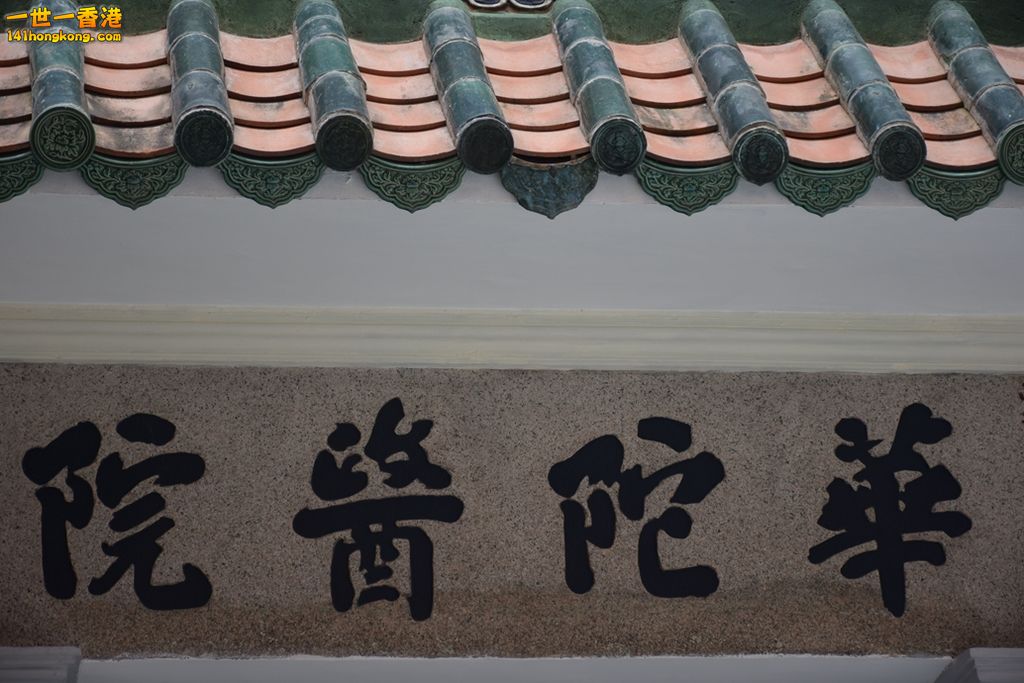 一世一香港
141hongkong.com
華陀醫院